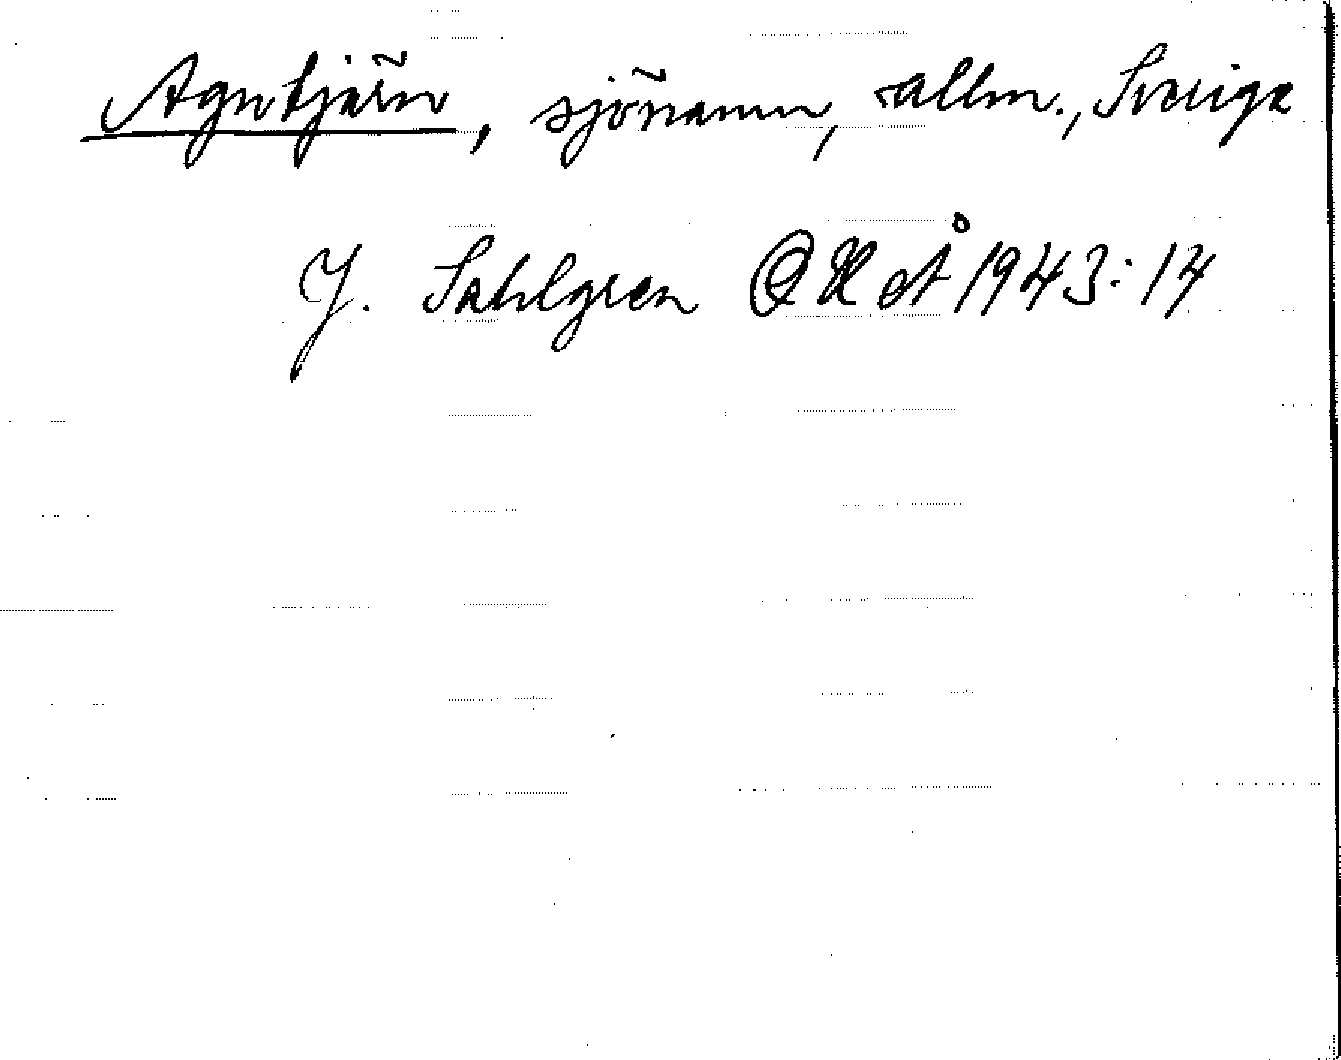 Agntjärn, sjönamn, allm., Sverige
J. Sahlgren OUÅ 1943: 14